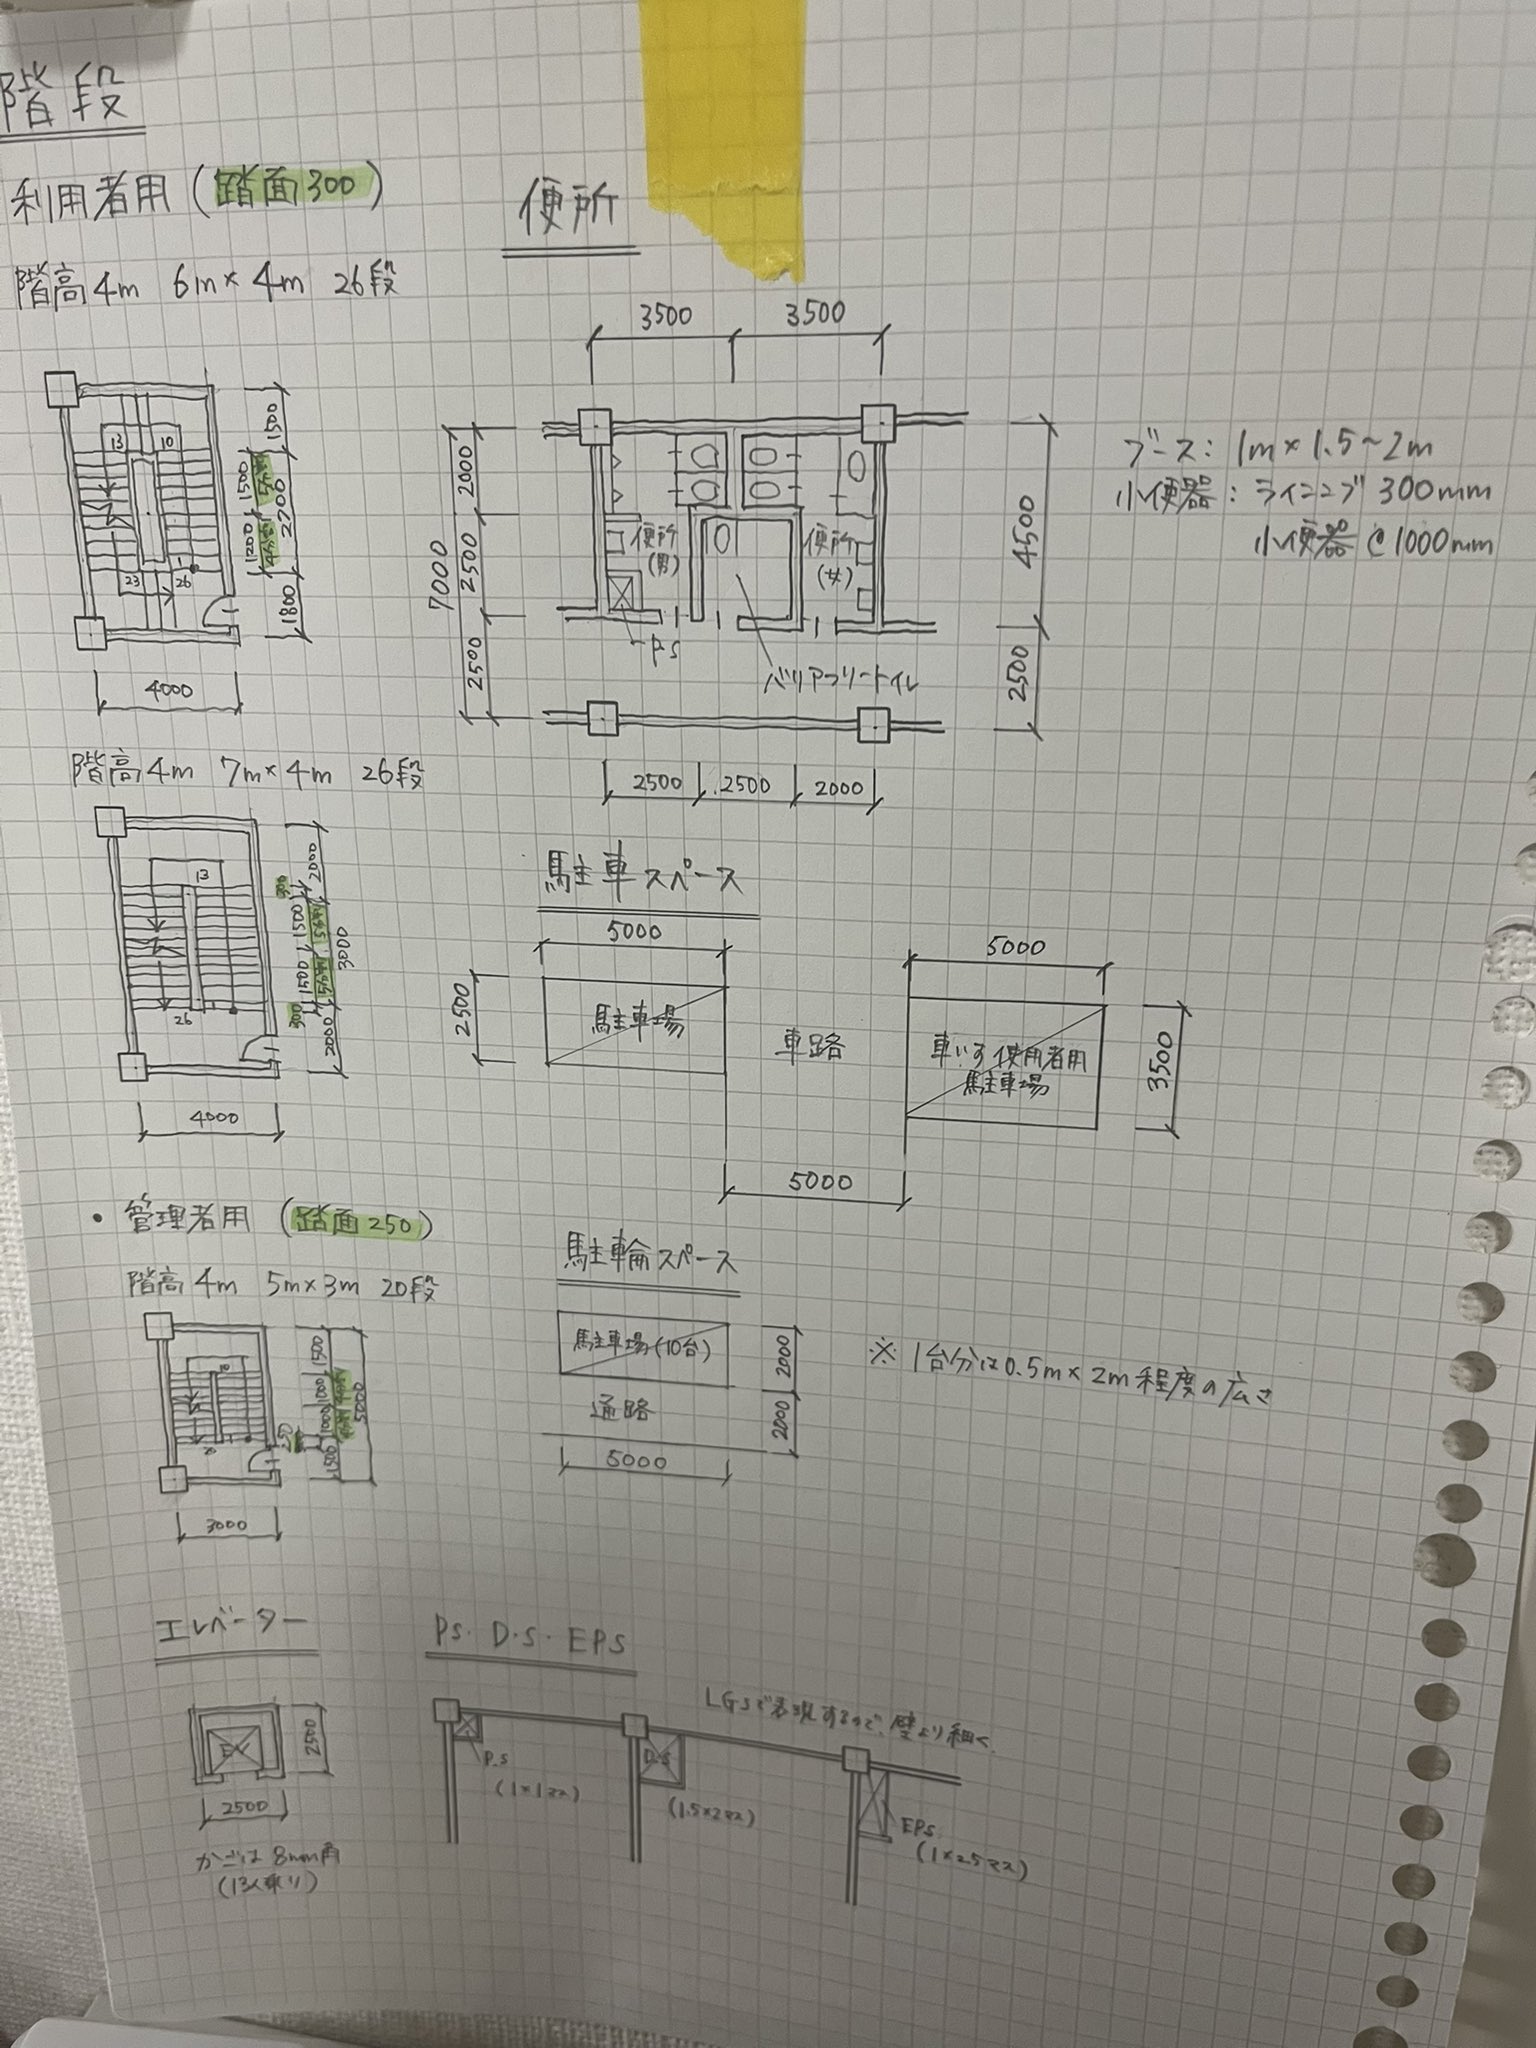 階段
利用者用(踏面300)
階高4m 6m×4m 26段
13
10
23
26
1500
1200
5分割
4分割
1500
2700
1800
4000
階高4m 7m×4m 26段
13
26
300
1500
1500
300
5分割
5分割
2000
3000
2000
4000
・管理者用(踏面250)
階高4m 5m×3m 20段
10
20
1500
1000
1000
1500
250
4分割
4分割
5000
3000
エレベーター
EV
2500
2500
かごは8mm角
(13人乗り)
便所
3500
3500
7000
2000
2500
2500
4500
2500
便所
(男)
便所
(女)
PS
バリアフリートイレ
2500
2500
2000
ブース:1m×1.5~2m
小便器:ライニング300mm
小便器@1000mm
駐車スペース
5000
2500
駐車場
車路
5000
5000
車いす使用者用
駐車場
3500
駐輪スペース
駐車場(10台)
通路
2000
2000
5000
※1台分は0.5m×2m程度の広さ
PS・D.S・EPS
LGSで表現するので、壁より細く
P.S
(1×1マス)
D.S
(1.5×2マス)
EPS
(1×2.5マス)